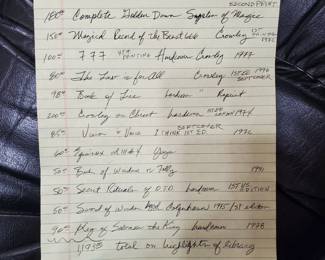 SECOND PRINT
180⁰⁰ Complete Golden Dawn System of Magic
150⁰⁰ Magical Record of the Beast 666 Crowley 1972
100⁰⁰ 777 PRINTING Hardcover Crowley 1977
80⁰⁰ The Law is for All Crowley 1ST ED 1996 SOFTCOVER
98⁰⁰ Book of Lies hardcover " Reprint
200 Crowley on Christ hardcover 1974
SOFTCOVER
85⁰⁰ Vision & Voice I THINK 1ST ED. 1972
60⁰⁰ Equinox of
50⁰⁰ Book of Wisdom or Folly 1991
50⁰⁰ Secret Rituals of O.T.O hardcover 1ST US EDITION
50⁰⁰ Sword of Wisdom Colquhoun 1975 1st edition
90⁰⁰ Key of Solomon the King hardcover 1978
1,193⁰⁰ total on highlights of library